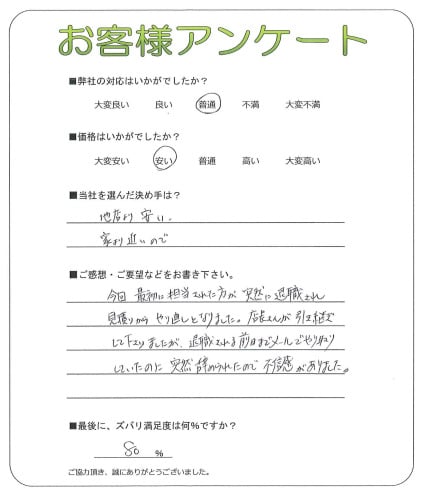 お客様アンケート
■弊社の対応はいかがでしたか？
大変良い 良い 普通 不満 大変不満
■価格はいかがでしたか？
大変安い 安い 普通 高い 大変高い
■当社を選んだ決め手は？
他店より安い.
家より近いので
■ご感想・ご要望などをお書き下さい。
今回 最初に担当された方が 突然に退職され
見積りから やり直しとなりました。店長さんが 引き継ぎ
して下さりましたが、退職される前日までメールでやりとり
していたのに 突然辞められたので 不信感がありました。
■最後に、ズバリ満足度は何％ですか？
80 ％
ご協力頂き、誠にありがとうございました。